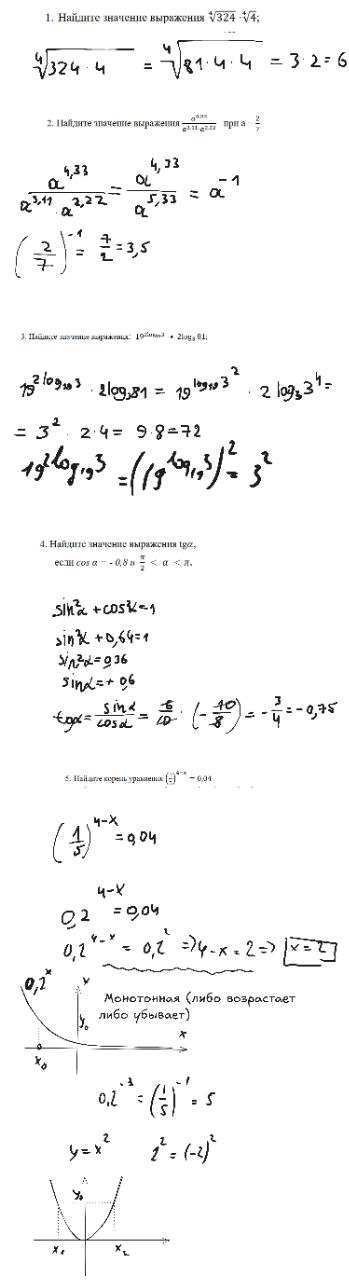 1. Найдите значение выражения ∜324 · ∜4;
∜(324·4) = ∜(81·4·4) = 3·2 = 6
2. Найдите значение выражения a^4,33 / (a^3,11·a^2,22) при a = 2/7
a^4,33 / (a^3,11·a^2,22) = a^4,33 / a^5,33 = a^-1
(2/7)^-1 = 7/2 = 3,5
3. Найдите значение выражения: 19^(2log₁₉3) • 2log₃ 81;
19^(2log₁₉3) · 2log₃81 = 19^(log₁₉3²) · 2 log₃3⁴ =
= 3² · 2·4 = 9·8 = 72
19^(2log₁₉3) = (19^(log₁₉3))² = 3²
4. Найдите значение выражения tgα,
если cos α = - 0,8 и π/2 < α < π.
sin²α + cos²α = 1
sin²α + 0,64 = 1
sin²α = 0,36
sinα = + 0,6
tgα = sinα/cosα = 6/10 · (-10/8) = -3/4 = -0,75
5. Найдите корень уравнения (1/5)^(4-x) = 0,04
(1/5)^(4-x) = 0,04
0,2^(4-x) = 0,04
0,2^(4-x) = 0,2² => 4-x = 2 => x = 2
0,2^x
y
Монотонная (либо возрастает
либо убывает)
y₀
x
x₀
0,2^-3 = (1/5)^-1 = 5
y = x² 2² = (-2)²
y₀
x₁ x₂